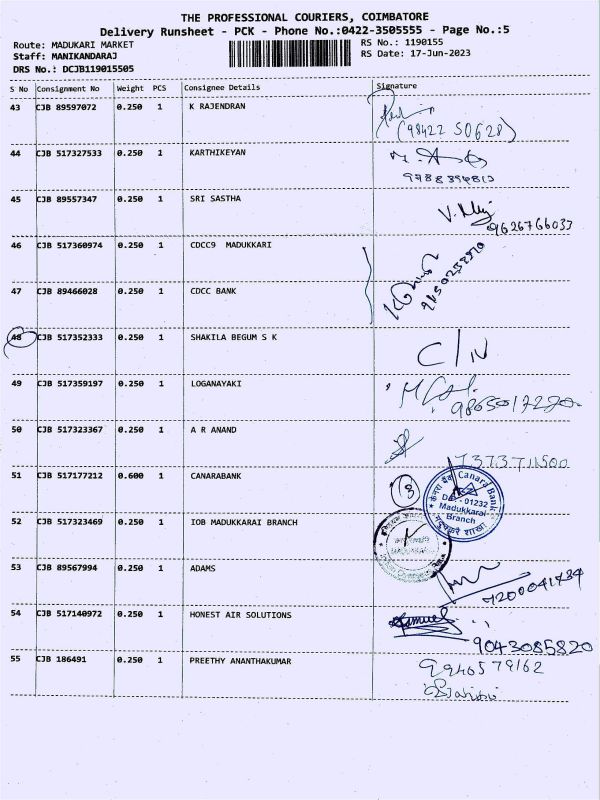 THE PROFESSIONAL COURIERS, COIMBATORE
Delivery Runsheet - PCK - Phone No.:0422-3505555 - Page No.:5
Route: MADUKARI MARKET
RS No.: 1190155
Staff: MANIKANDARAJ
RS Date: 17-Jun-2023
DRS No.: DCJB119015505
S No Consignment No Weight PCS Consignee Details Signature
43 CJB 89597072 0.250 1 K RAJENDRAN
(98422 50628)
44 CJB 517327533 0.250 1 KARTHIKEYAN
9788394813
45 CJB 89557347 0.250 1 SRI SASTHA
9626766033
46 CJB 517360974 0.250 1 CDCC9 MADUKKARI
47 CJB 89466028 0.250 1 CDCC BANK
48 CJB 517352333 0.250 1 SHAKILA BEGUM S K
C/N
49 CJB 517359197 0.250 1 LOGANAYAKI
9865017220
50 CJB 517323367 0.250 1 A R ANAND
7373711500
51 CJB 517177212 0.600 1 CANARABANK
3
केनरा बैंक Canara Bank
01232
Madukkarai
Branch
52 CJB 517323469 0.250 1 IOB MADUKKARAI BRANCH
53 CJB 89567994 0.250 1 ADAMS
7200041434
54 CJB 517140972 0.250 1 HONEST AIR SOLUTIONS
9043085820
55 CJB 186491 0.250 1 PREETHY ANANTHAKUMAR
9940579162